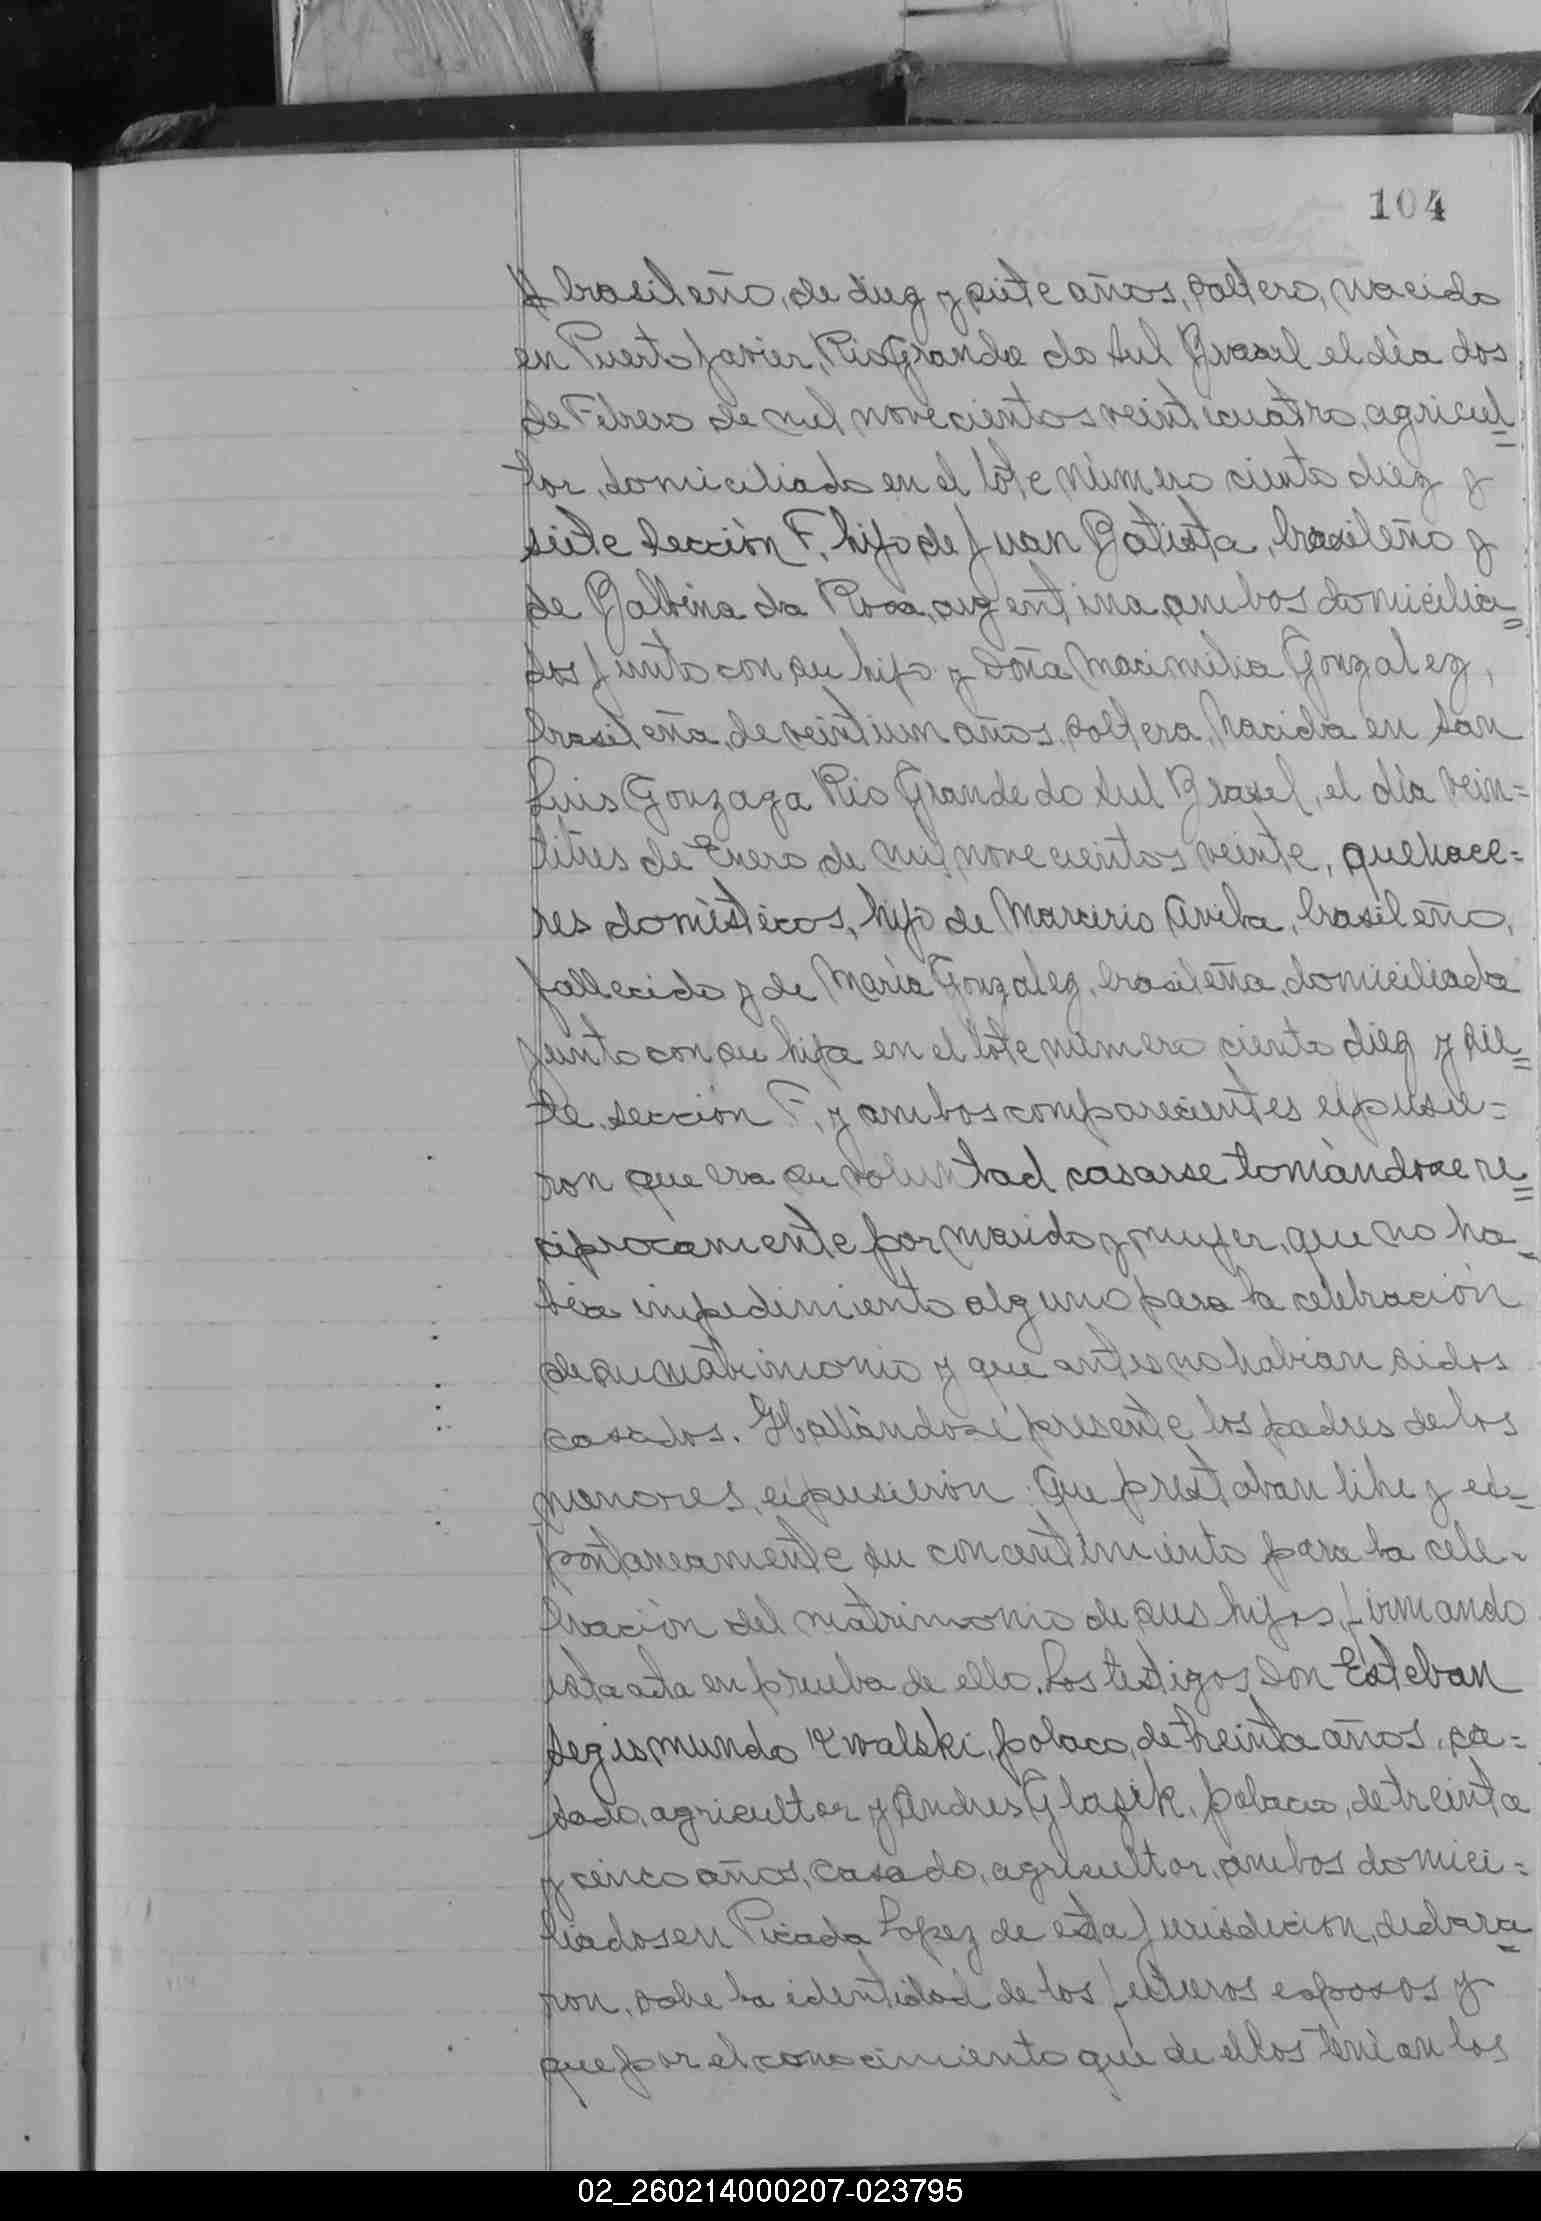 104
brasileño, de diez y siete años, soltero, nacido
en Puerto Javier, Rio Grande do Sul Brasil el día dos
de Febrero de mil novecientos veinticuatro, agricul=
tor, domiciliado en el lote número ciento diez y
siete Sección F, hijo de Juan Batista, brasileño y
de Balbina da Rosa, argentina ambos domicilia=
dos junto con su hijo y Doña Macimilia Gonzalez,
brasileña, de veintiun años, soltera, nacida en San
Luis Gonzaga Rio Grande do Sul Brasil, el día vein=
titres de Enero de mil novecientos veinte, quehace=
res domésticos, hija de Marcirio Avila, brasileño,
fallecido y de María Gonzalez, brasileña, domiciliada
junto con su hija en el lote número ciento diez y sie=
te, sección F, y ambos comparecientes expusie=
ron que era su voluntad casarse tomándose re=
ciprocamente por marido y mujer, que no ha=
bía impedimento alguno para la celebración
de su matrimonio y que antes no habían sidos
casados. Hallándose presente los padres de los
menores, expusieron: Que prestaban libre y es=
pontaneamente su consentimiento para la cele=
bración del matrimonio de sus hijos, firmando
esta acta en prueba de ello. Los testigos Don Esteban
Segismundo Kwalski, polaco, de treinta años, ca=
sado, agricultor y Andres Glasik, polaco, de treinta
y cinco años, casado, agricultor, ambos domici=
liados en Picada Lopez de esta jurisdicion, declara=
ron, sobre la identidad de los futuros esposos y
que por el conocimiento que de ellos tenían los
02_260214000207-023795